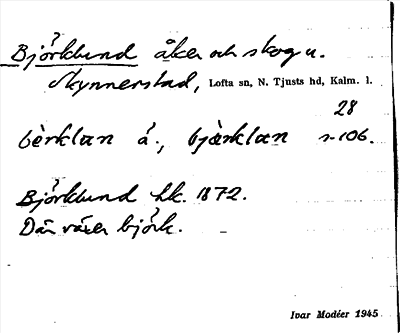 Björklund åker och skog u.
Mynnerstad, Lofta sn, N. Tjusts hd, Kalm. l.
28
bèrklan å., bjàrklan s. 106.
Björklund hk. 1872.
Där växer björk.
Ivar Modéer 1945